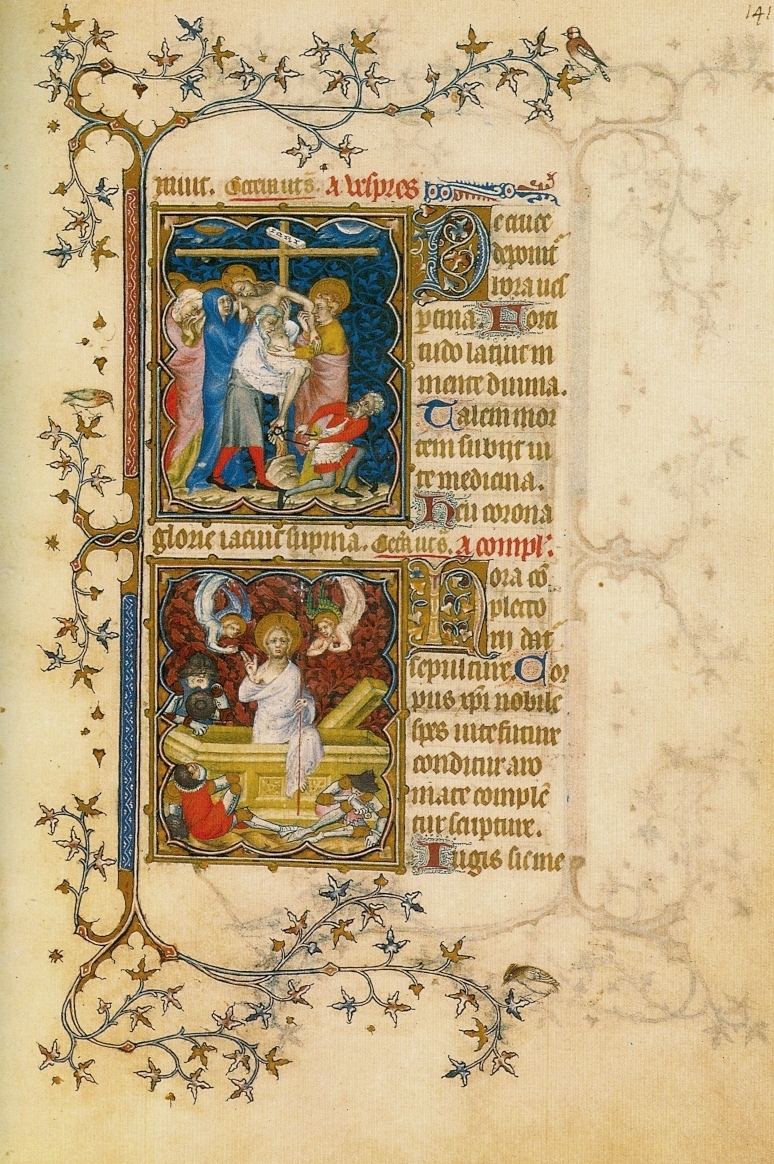 141
mint. Oremus. A vespres
De cruce
deponit
hora ves
pertina. Forti
tudo latuit in
mente divina.
Talem mor
tem subiit vi
te medicina.
Heu corona
glorie iacuit supina. A compl'.
INRI
Hora co
pletorii
datur
sepulture. Cor
pus xpi nobile
spes vite future
conditur aro
mate comple
tur scripture.
Iugis sit me